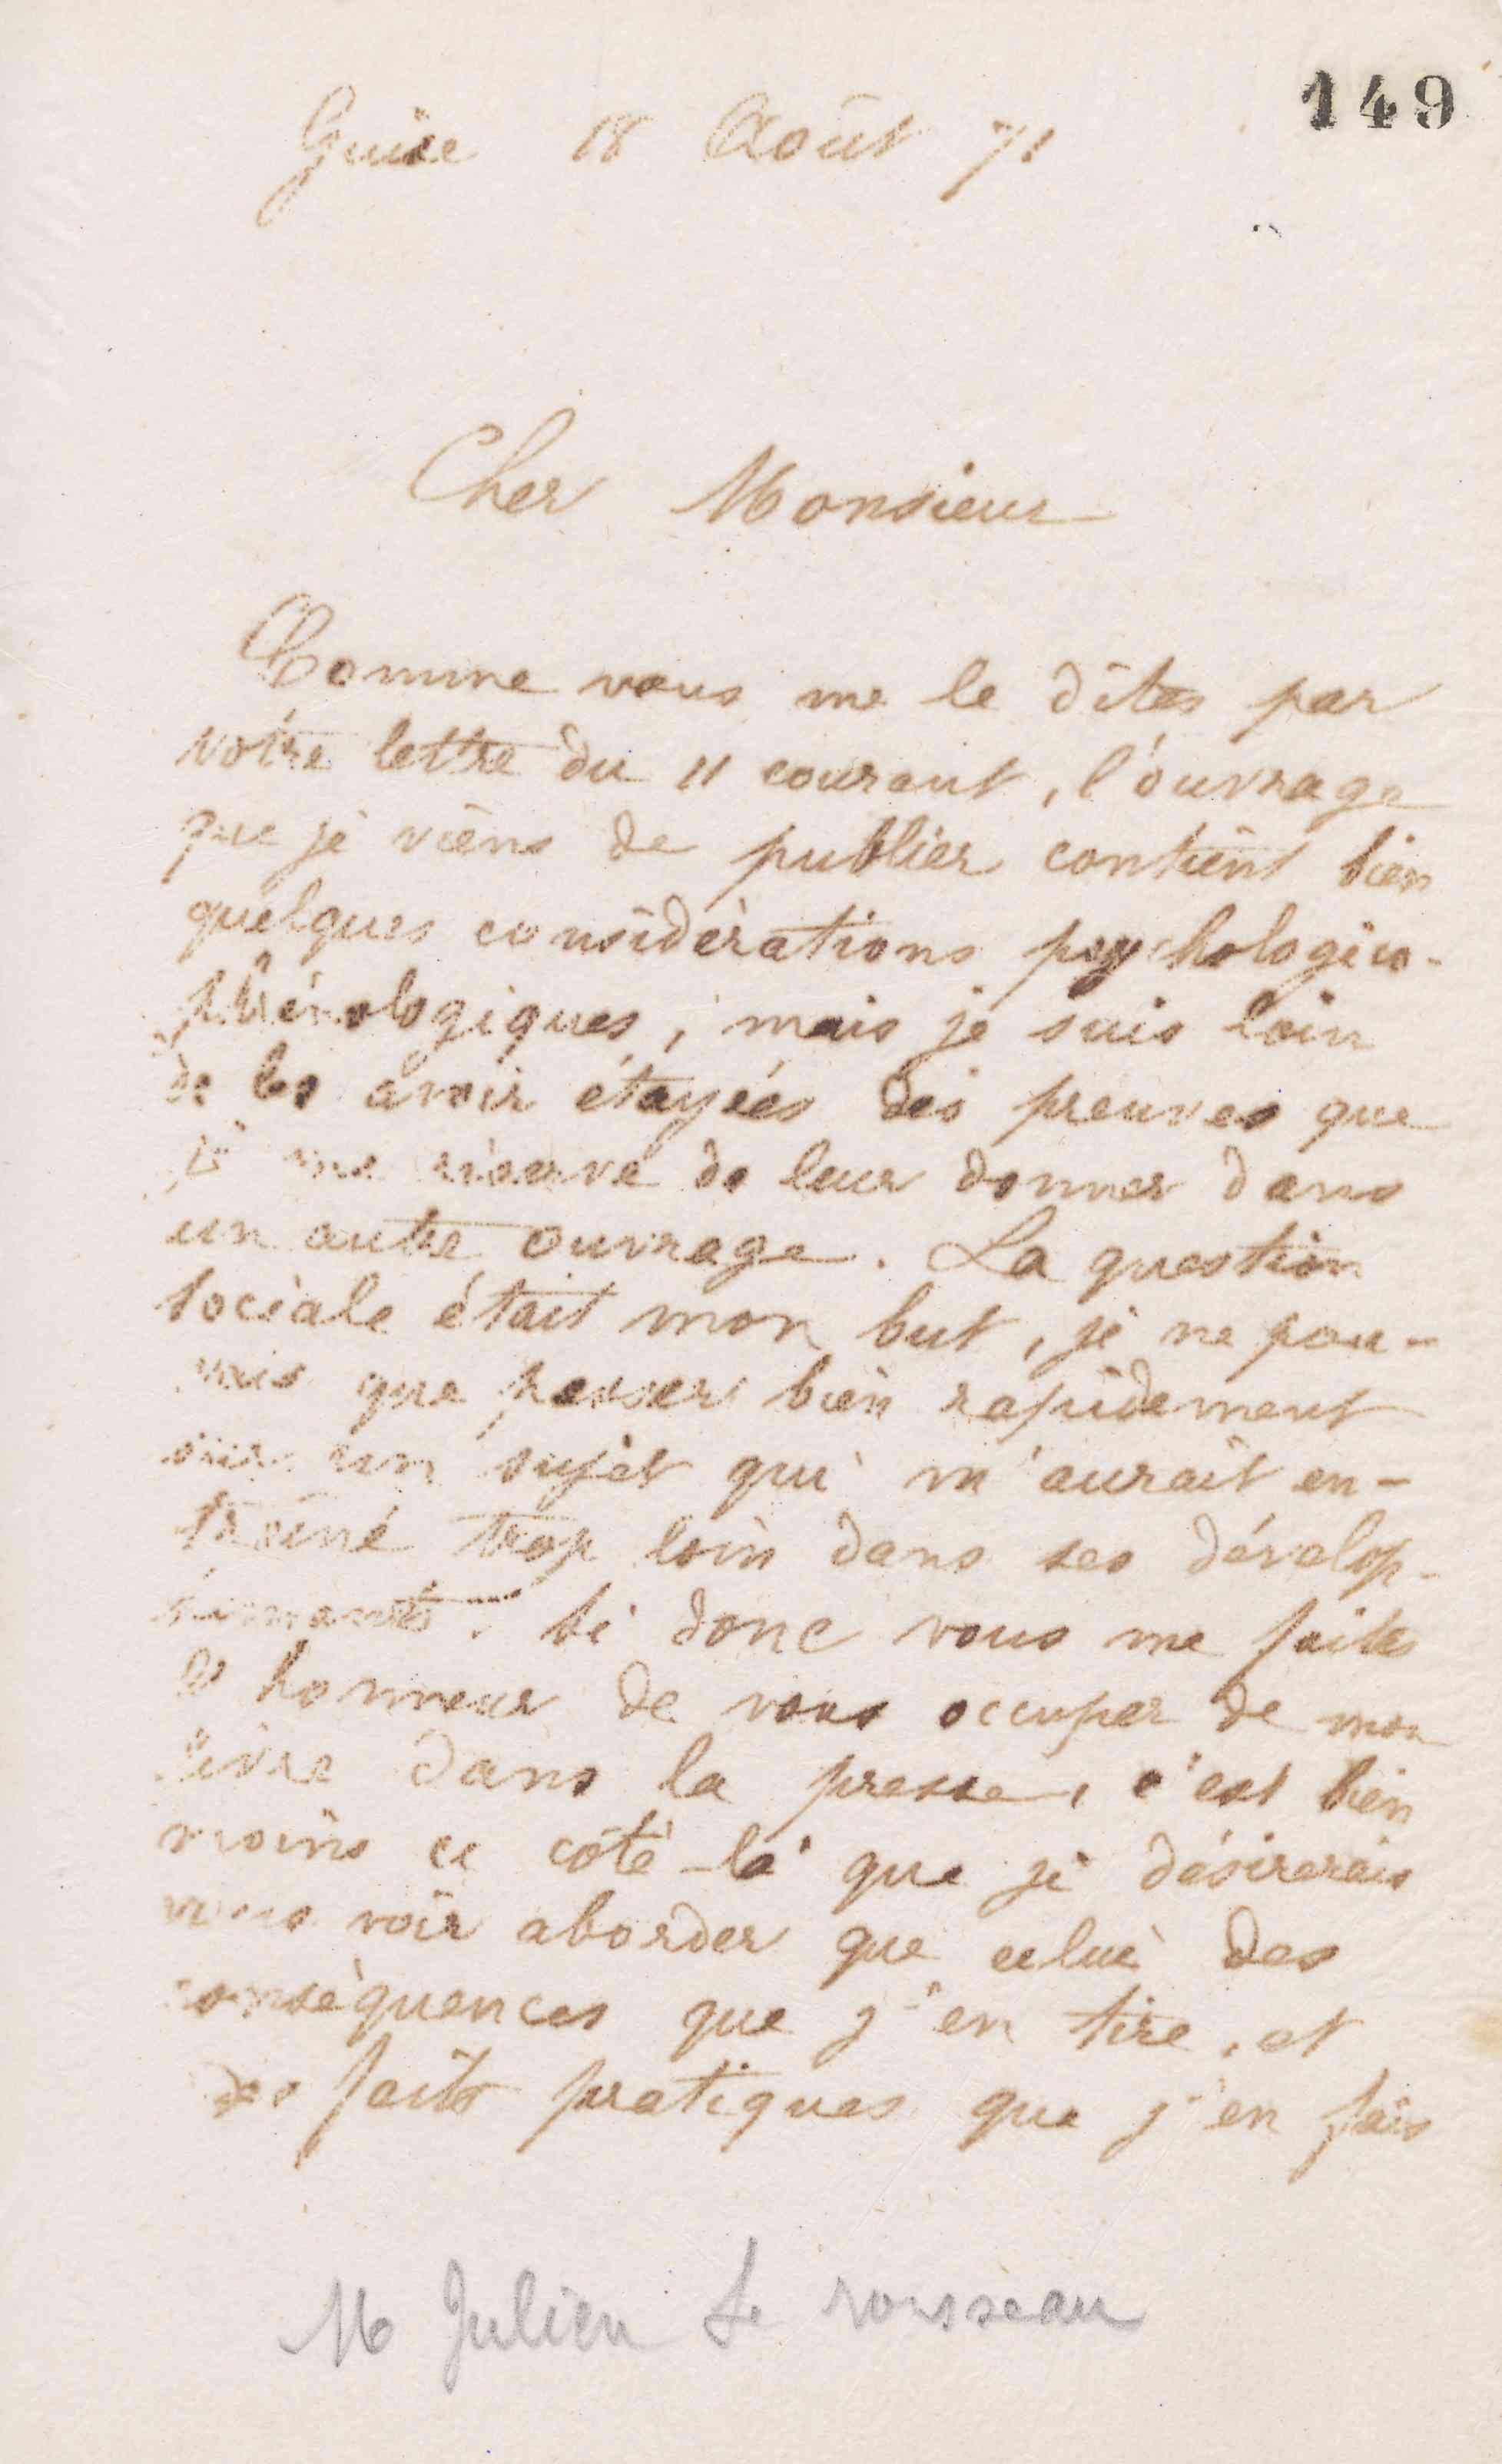 149
Guise 18 Août 71
Cher Monsieur
Comme vous me le dites par
votre lettre du 11 courant, l'ouvrage
que je viens de publier contient bien
quelques considérations psychologico-
phrénologiques, mais je suis loin
de les avoir étayées des preuves que
je me réserve de leur donner dans
un autre ouvrage. La question
sociale était mon but, je ne pou-
vais que passer bien rapidement
sur un sujet qui m'aurait en-
trainé trop loin dans ses dévelop-
pements. Si donc vous me faites
l'honneur de vous occuper de mon
livre dans la presse, c'est bien
moins ce côté-là que je désirerais
vous voir aborder que celui des
conséquences que j'en tire, et
des faits pratiques que j'en fais
M Julien Le rousseau